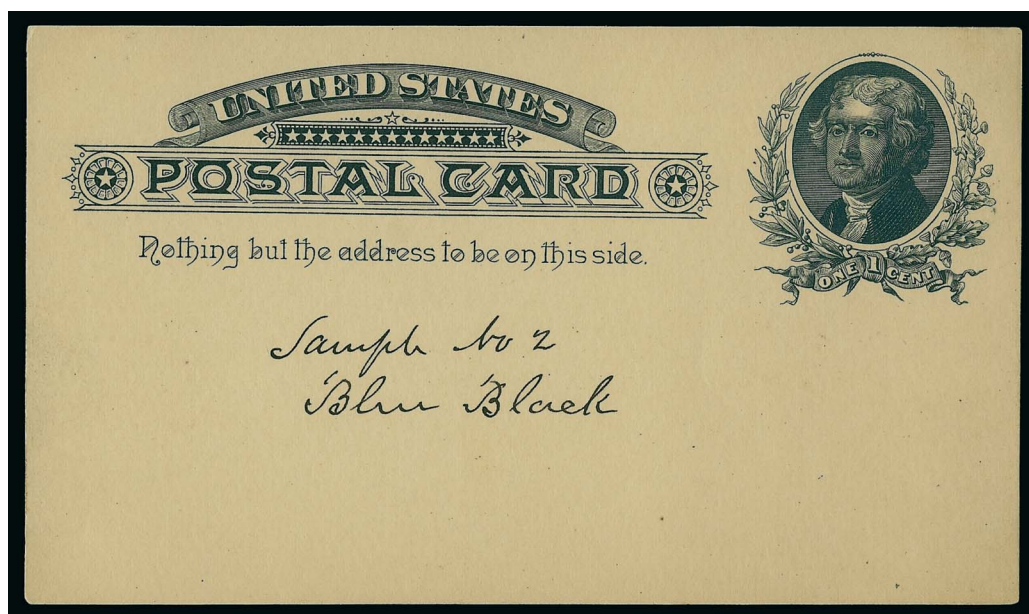 UNITED STATES
POSTAL CARD
Nothing but the address to be on this side.
ONE 1 CENT
Sample No 2
Blue Black